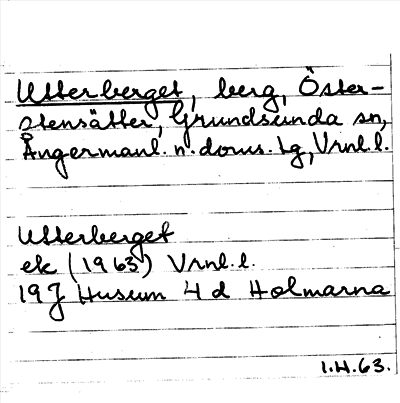 Utterberget, berg, Öster-
stensätter, Grundsunda sn,
Ångermanl. n. doms. tg, Vrnl. l.
Utterberget
ek (1963) Vrnl. l.
19 J Husum 4 d Holmarna
1.H.63.